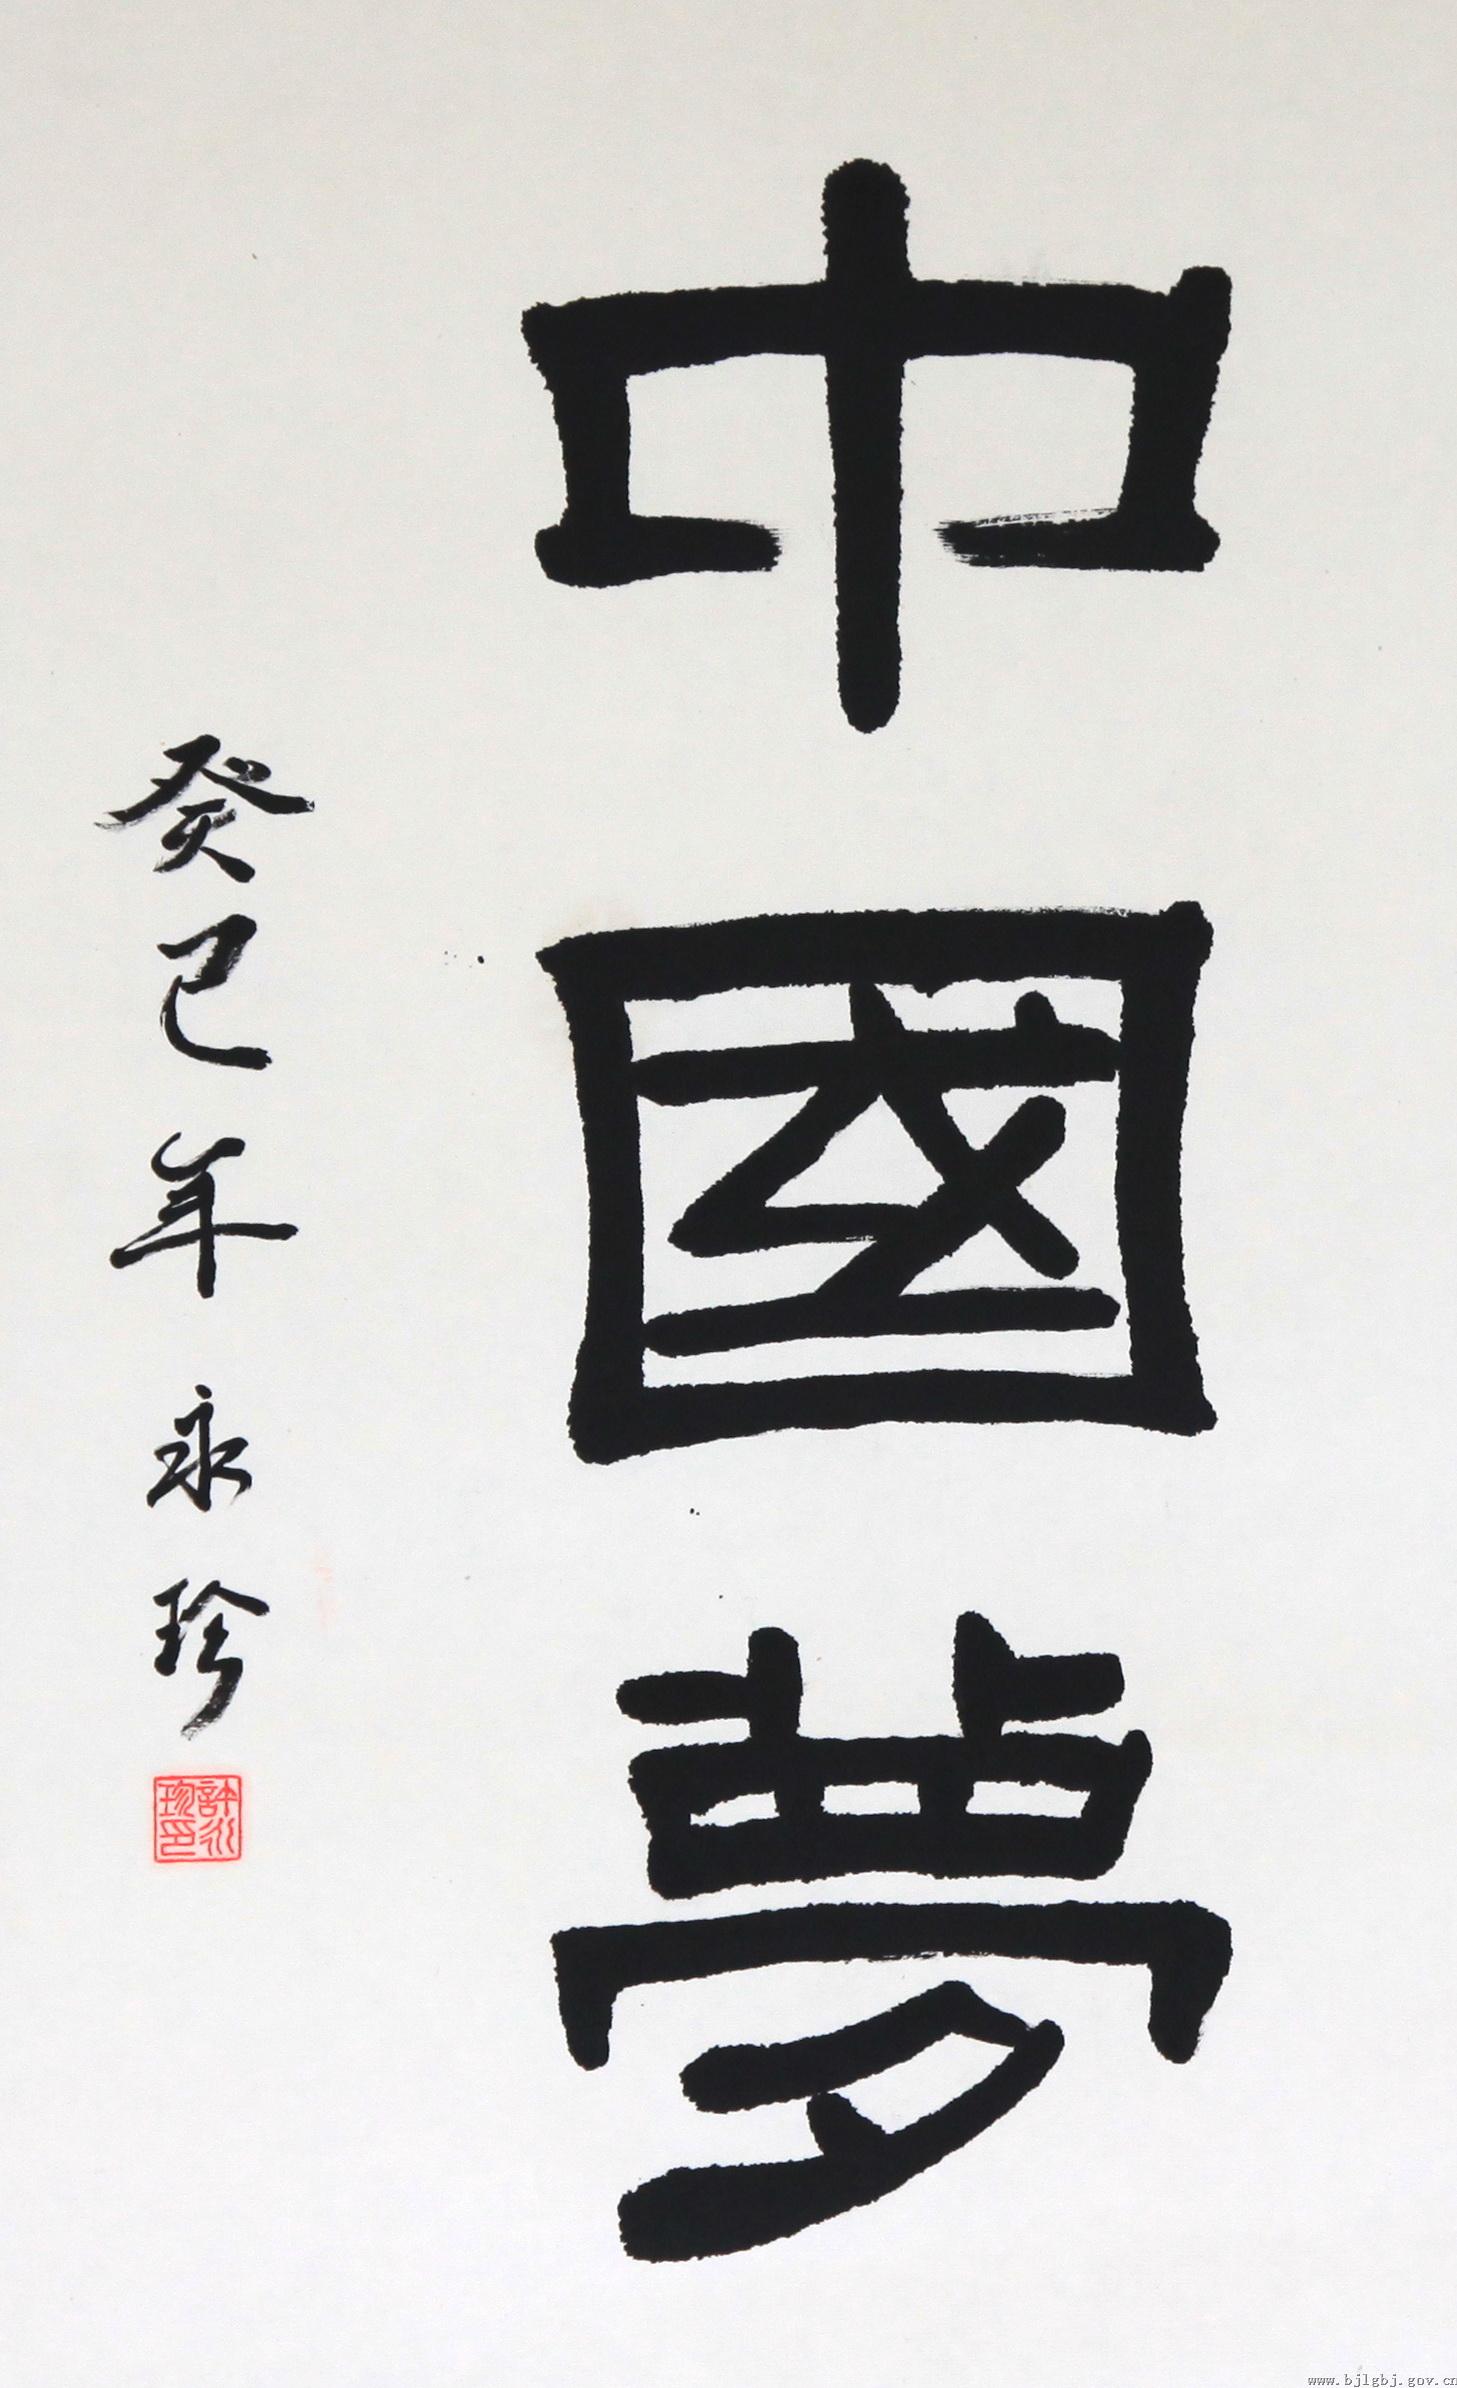 中國夢
癸巳年 永珍
許永
珍印
www.bjlgbj.gov.cn